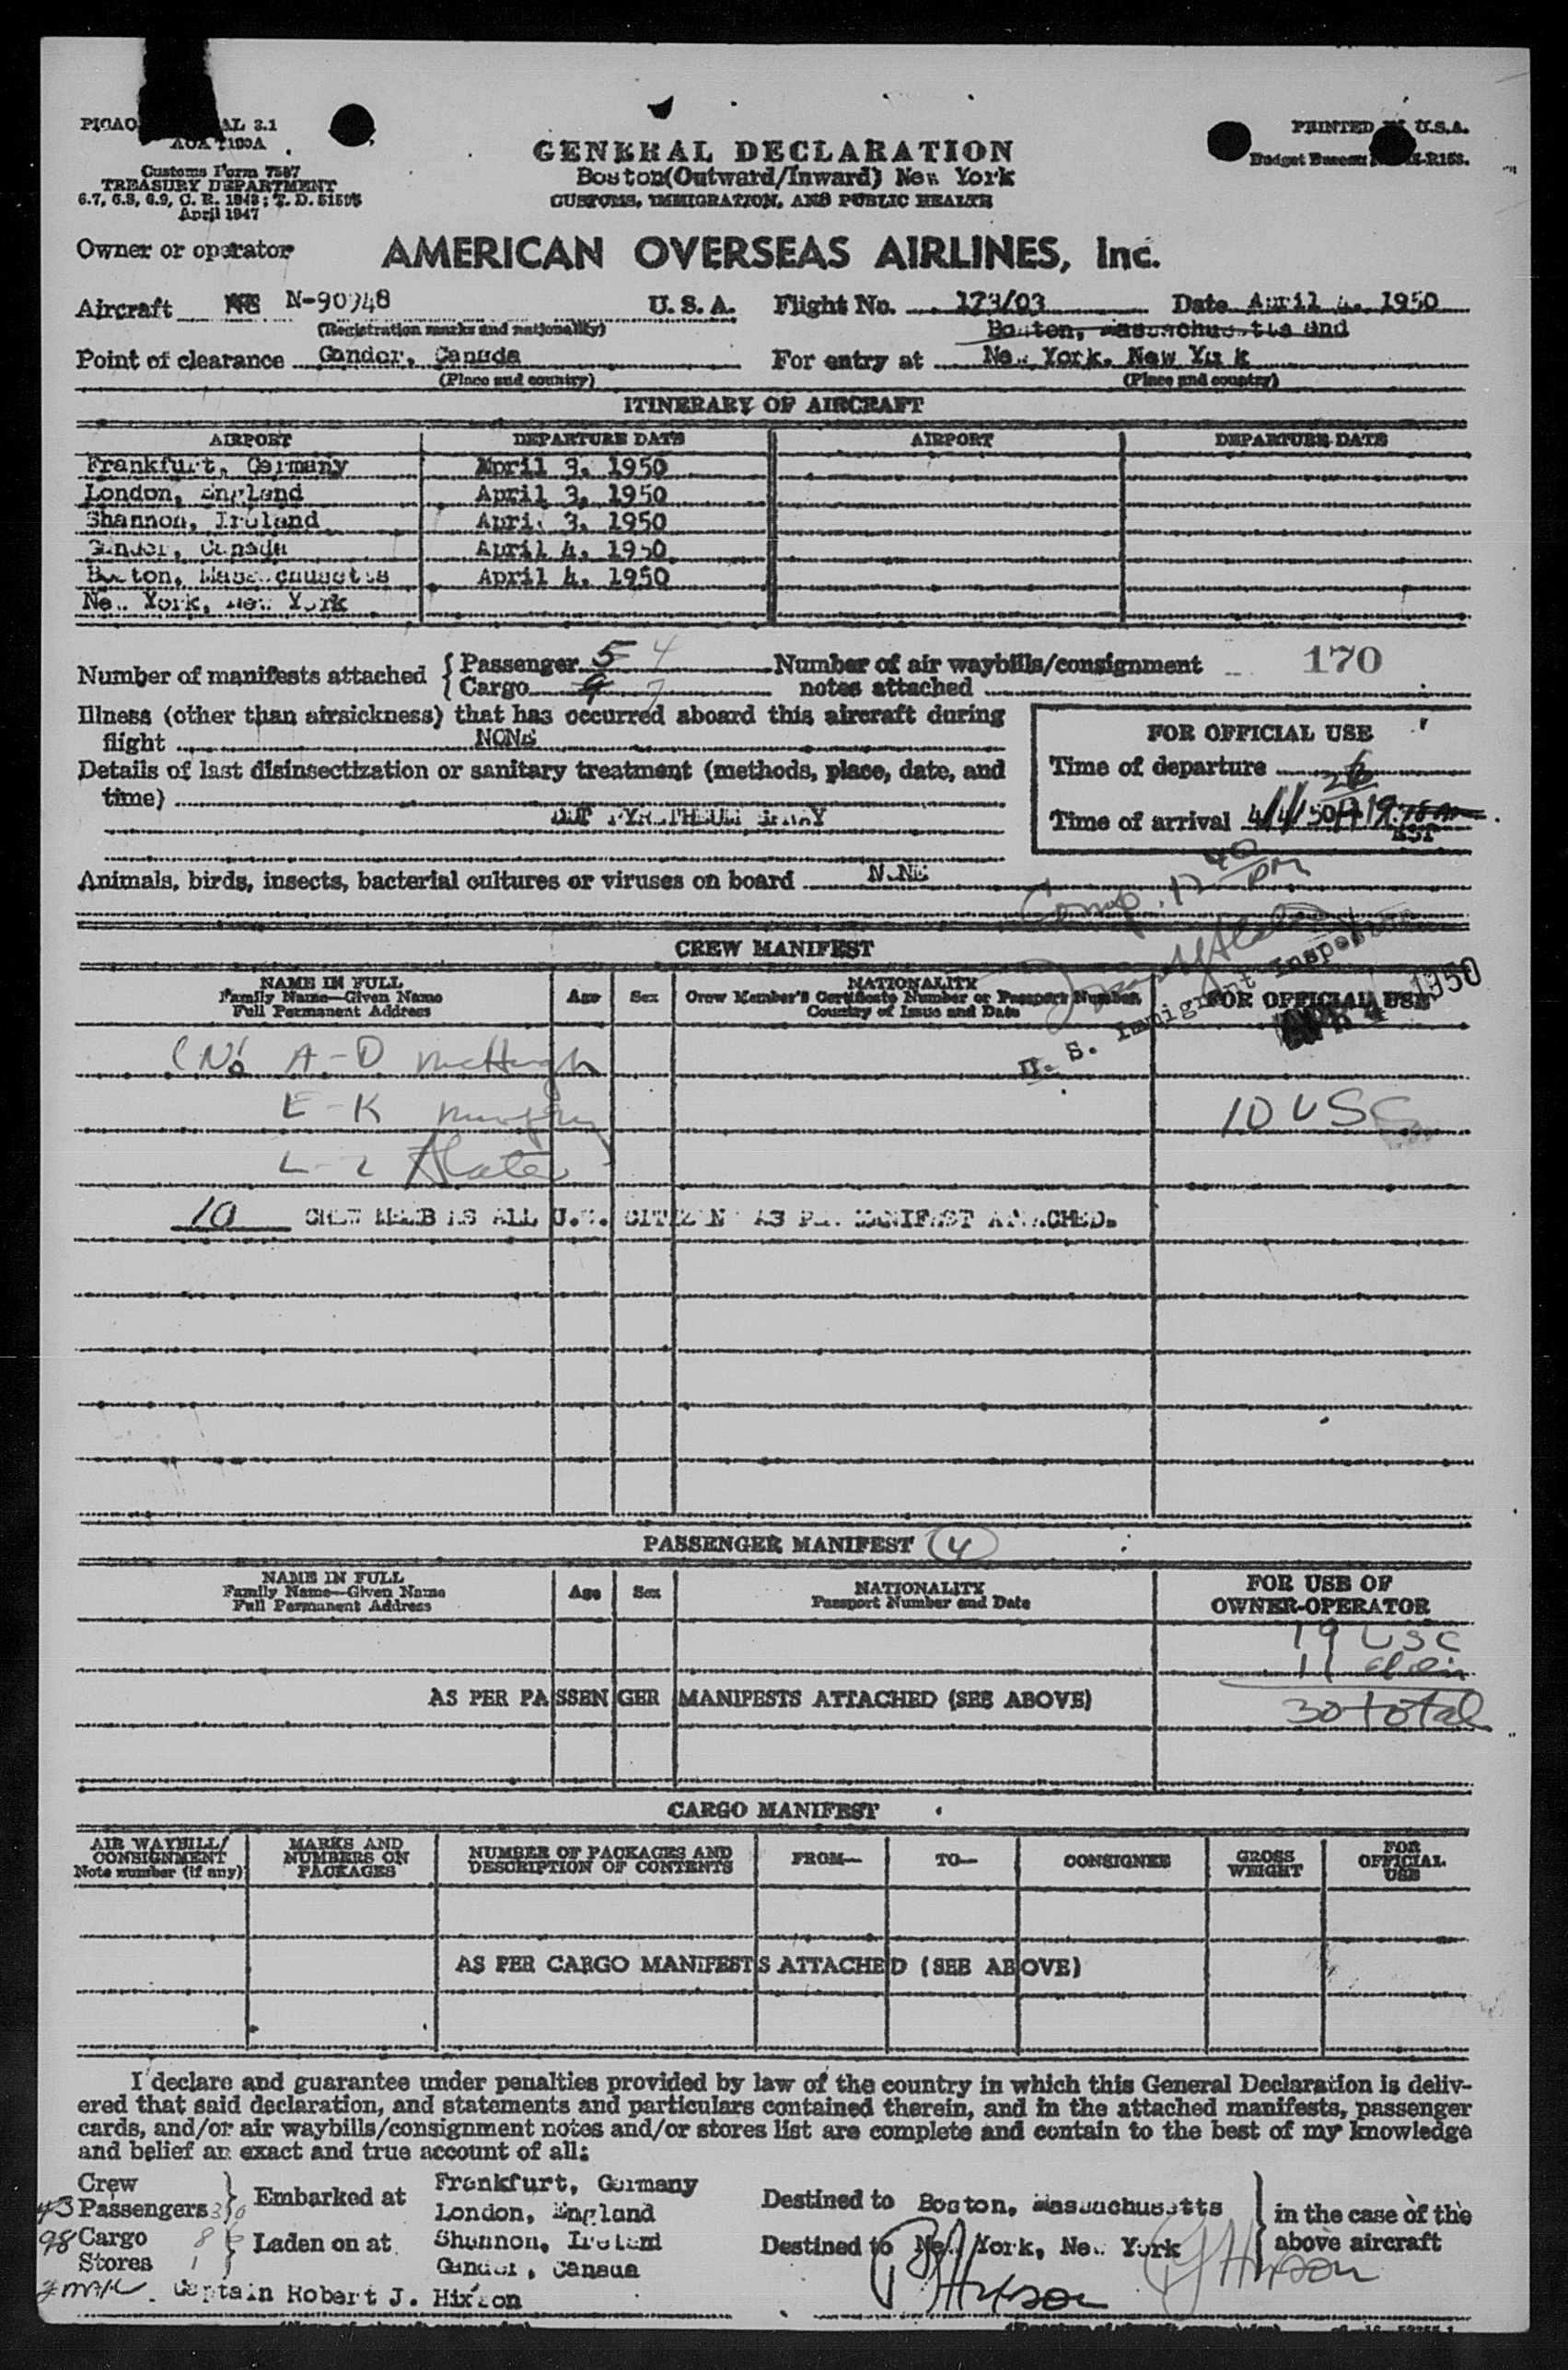 PRINTED U.S.A.
GENERAL DECLARATION
Customs Form 7507
Boston(Outward/Inward) New York
TREASURY DEPARTMENT
CUSTOMS, IMMIGRATION, AND PUBLIC HEALTH
April 1947
Owner or operator AMERICAN OVERSEAS AIRLINES, Inc.
Aircraft N-90948 U.S.A. Flight No. 173/03 Date April 4, 1950
(Registration marks and nationality) Boston, Massachusetts and
Point of clearance Gander, Canada For entry at New York, New York
(Place and country) (Place and country)
ITINERARY OF AIRCRAFT
AIRPORT DEPARTURE DATE AIRPORT DEPARTURE DATE
Frankfurt, Germany April 3, 1950
London, England April 3, 1950
Shannon, Ireland April 3, 1950
Gander, Canada April 4, 1950
Boston, Massachusetts April 4, 1950
New York, New York
Number of manifests attached { Passenger 5 4 Number of air waybills/consignment 170
Cargo 9 7 notes attached
Illness (other than airsickness) that has occurred aboard this aircraft during
flight NONE
FOR OFFICIAL USE
Details of last disinsectization or sanitary treatment (methods, place, date, and
Time of departure
time)
DDT PYRETHEUM SPRAY
Time of arrival 4/4/50
EST
Animals, birds, insects, bacterial cultures or viruses on board NONE
Comp. 12 40 PM
CREW MANIFEST
U. S. Immigrant Inspector
APR 4 1950
NAME IN FULL
Family Name—Given Name
Full Permanent Address
Age Sex
NATIONALITY
Crew Member's Certificate Number or Passport Number,
Country of Issue and Date
FOR OFFICIAL USE
A-D McHugh
E-K Murphy
L-Z Slater
10 USC
10 CREW MEMBERS ALL U.S. CITIZENS AS PER MANIFEST ATTACHED.
PASSENGER MANIFEST 4
NAME IN FULL
Family Name—Given Name
Full Permanent Address
Age Sex
NATIONALITY
Passport Number and Date
FOR USE OF
OWNER-OPERATOR
19 USC
11 alien
AS PER PASSENGER MANIFESTS ATTACHED (SEE ABOVE)
30 total
CARGO MANIFEST
AIR WAYBILL/
CONSIGNMENT
Note number (if any)
MARKS AND
NUMBERS ON
PACKAGES
NUMBER OF PACKAGES AND
DESCRIPTION OF CONTENTS
FROM— TO— CONSIGNEE
GROSS
WEIGHT
FOR
OFFICIAL
USE
AS PER CARGO MANIFESTS ATTACHED (SEE ABOVE)
I declare and guarantee under penalties provided by law of the country in which this General Declaration is deliv-
ered that said declaration, and statements and particulars contained therein, and in the attached manifests, passenger
cards, and/or air waybills/consignment notes and/or stores list are complete and contain to the best of my knowledge
and belief an exact and true account of all:
Crew Frankfurt, Germany
43 Passengers 30 Embarked at London, England Destined to Boston, Massachusetts in the case of the
98 Cargo Laden on at Shannon, Ireland Destined to New York, New York above aircraft
Stores 1 Gander, Canada
Captain Robert J. Hixson
RJ Hixson
RJ Hixson